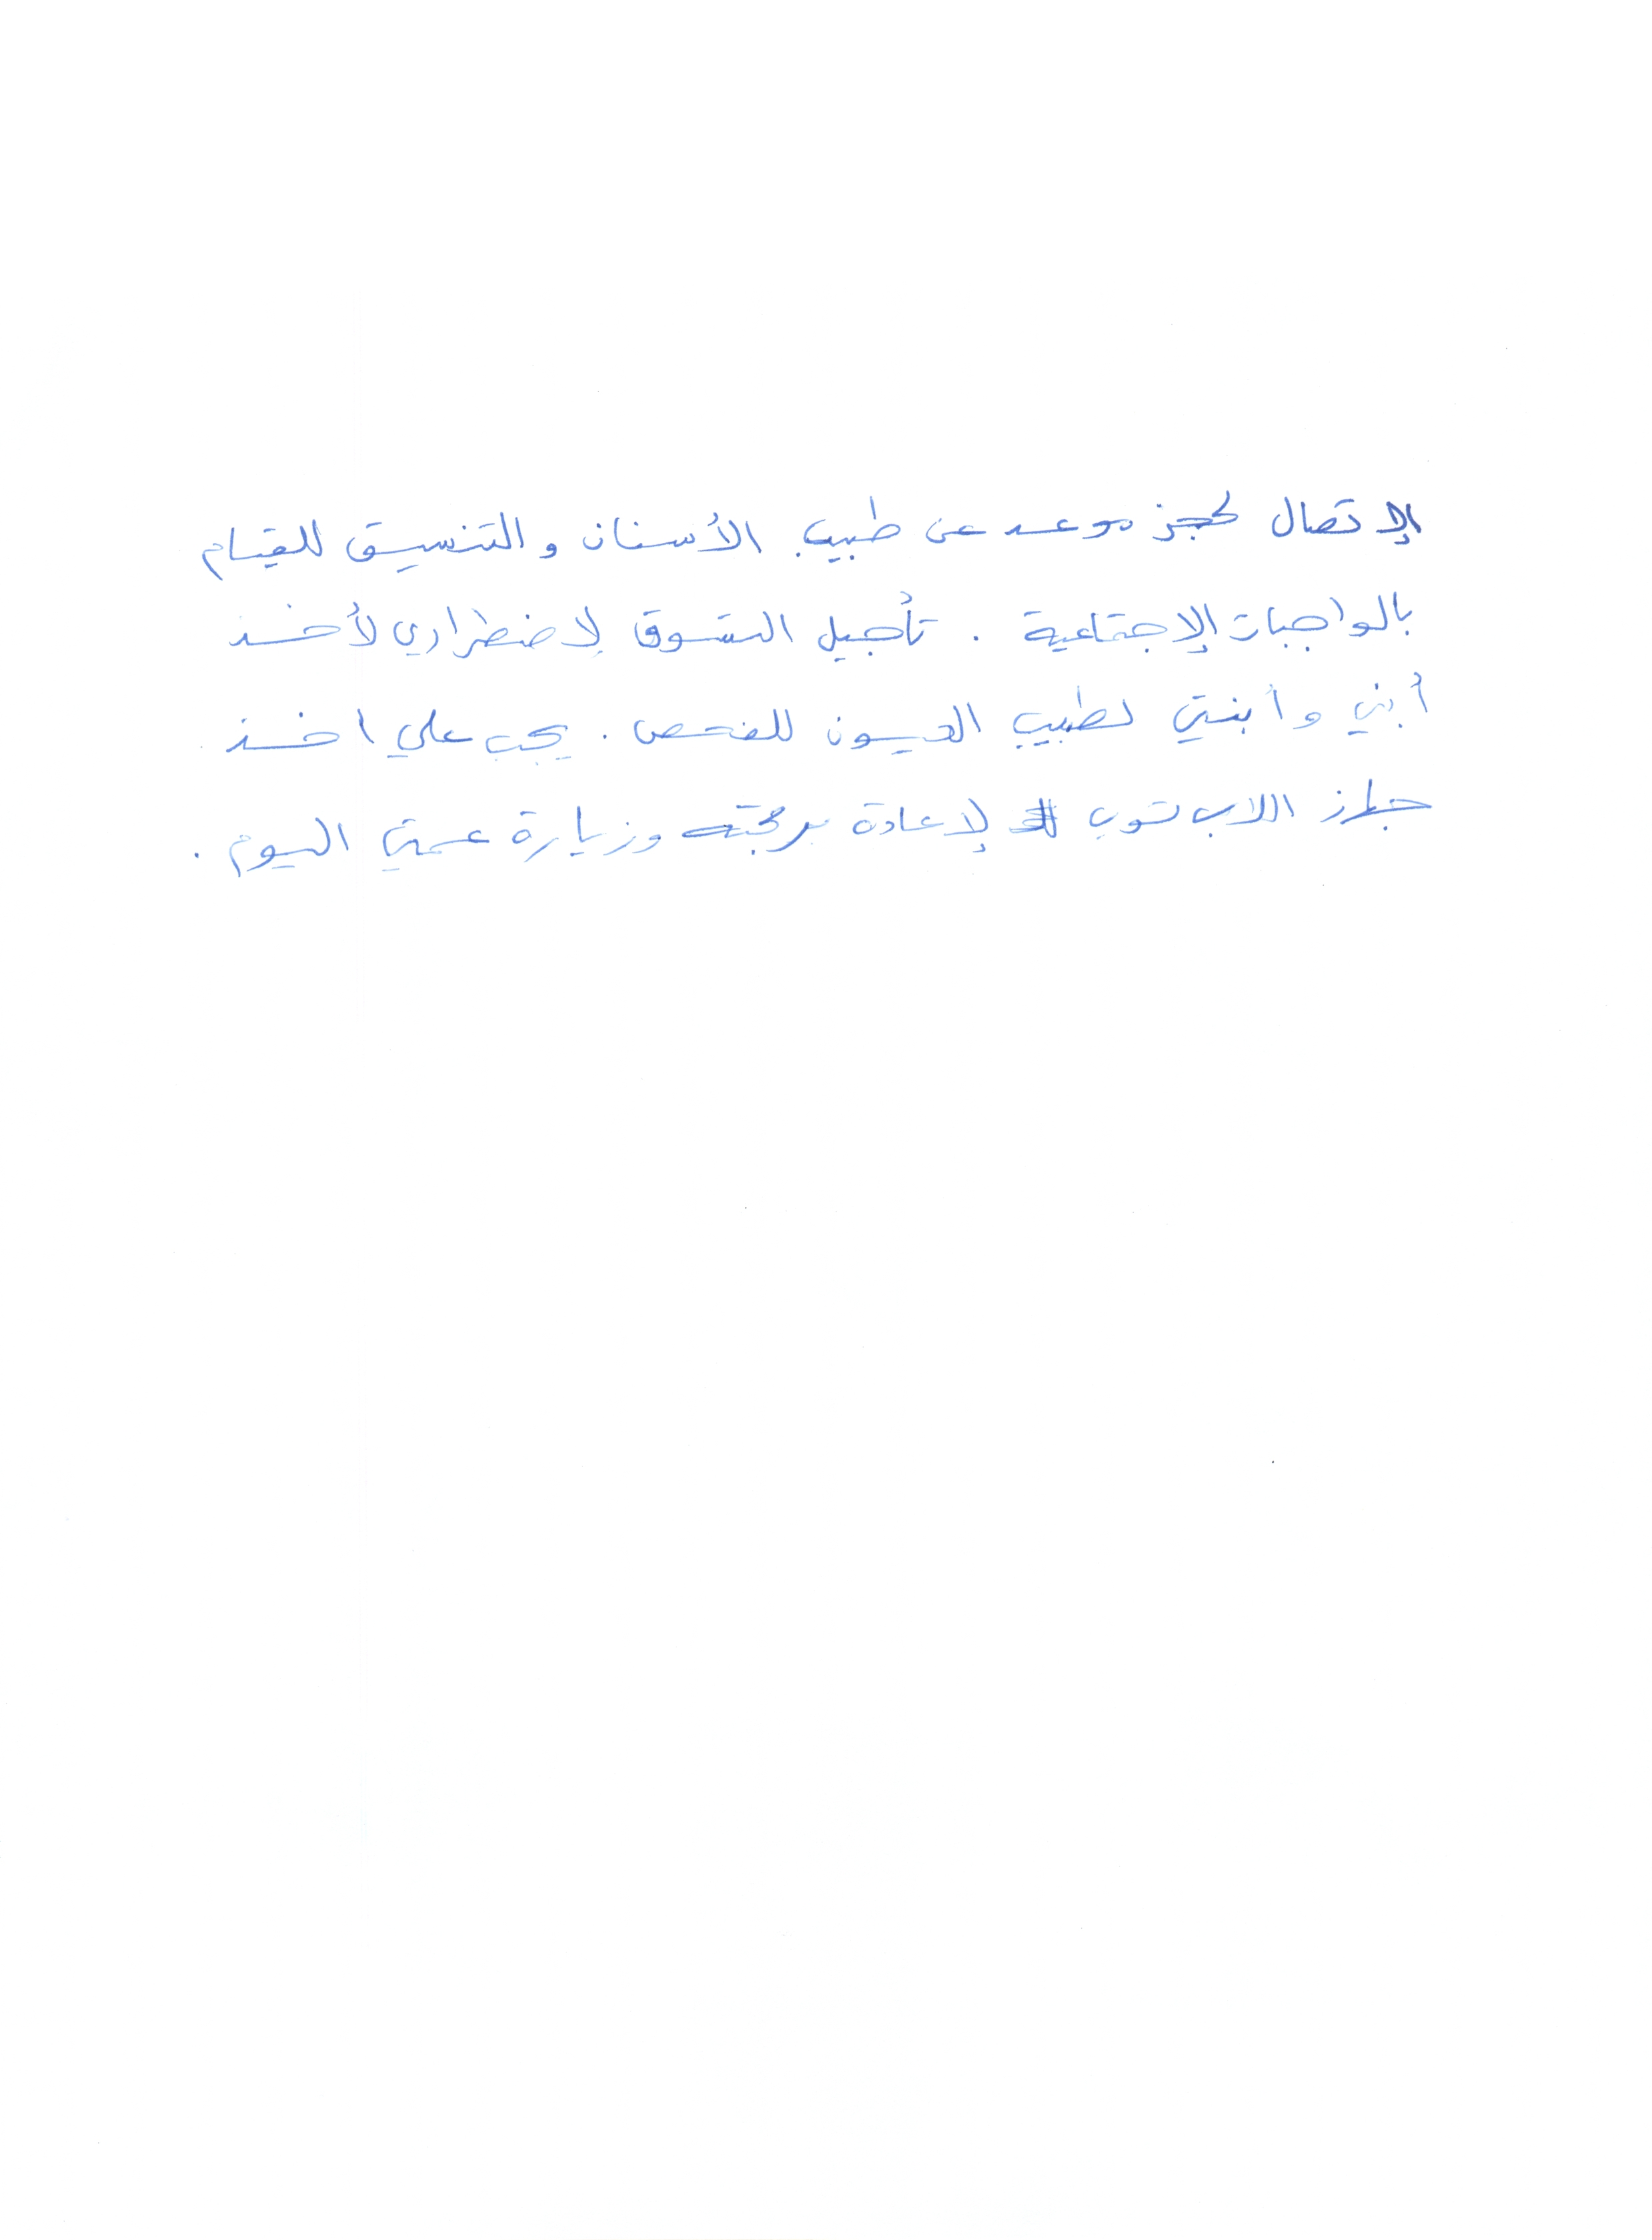 الإتصال لحجز موعد عن طبيب الأسنان والتنسيق للقيام
بالواجبات الإجتماعية . تأجيل التسوق لإضطراري لأخذ
أبني وأبنتي لطبيب العيون للفحص . يجب علي اخذ
جهاز اللاب توب لإعادة برمجته وزيارة عمتي اليوم .